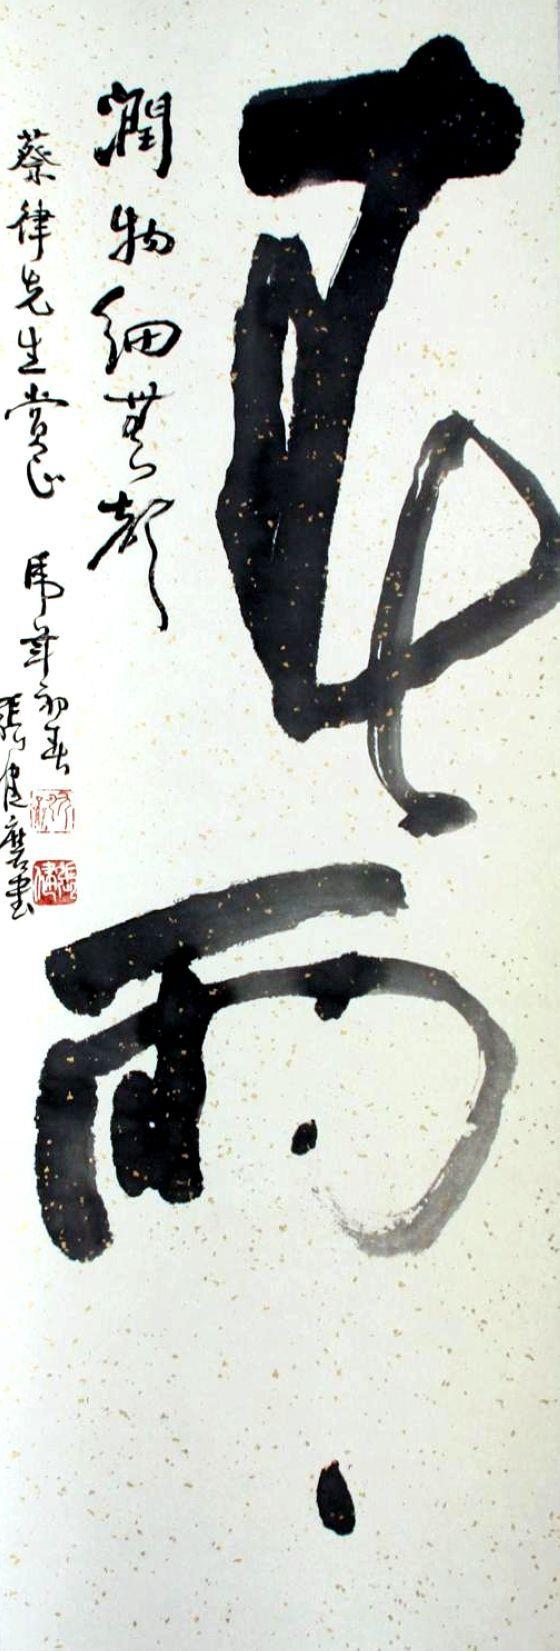 雨
潤物細無聲
蔡律先生賞正 馬年初春
張健